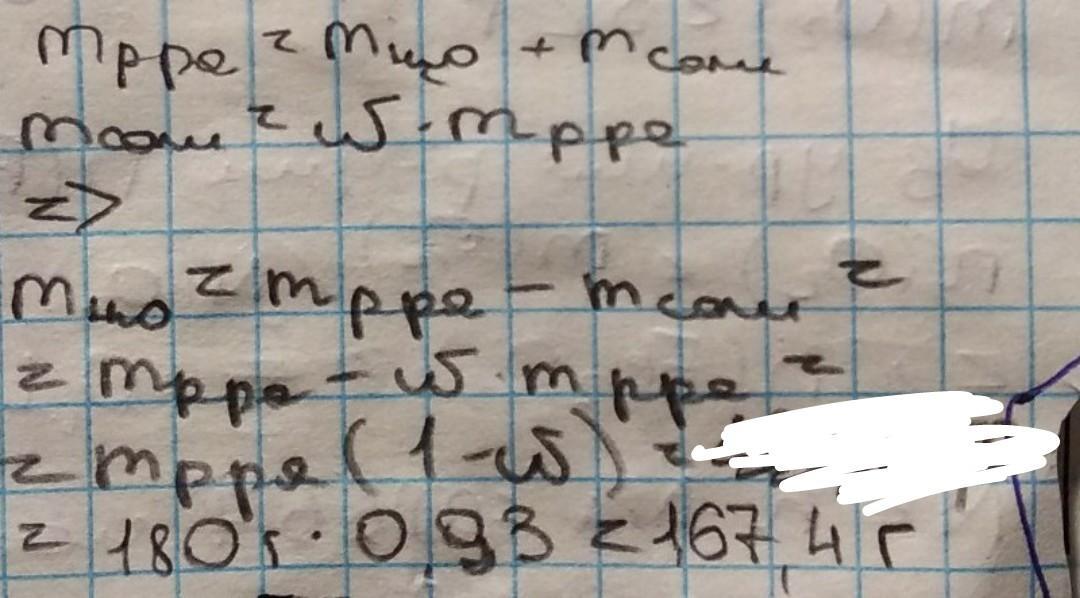 m р-ра = m H₂O + m соли
m соли = ω · m р-ра
=>
m H₂O = m р-ра - m соли =
= m р-ра - ω · m р-ра =
= m р-ра (1 - ω) =
= 180 г · 0,93 = 167,4 г